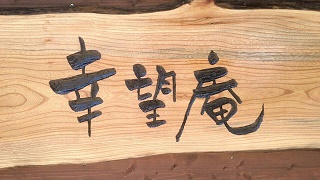 幸望庵